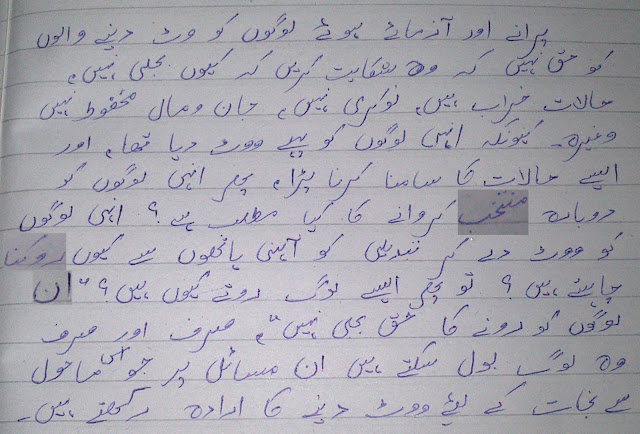 پرانے اور آزمائے ہوئے لوگوں کو وٹ دینے والوں
کو حق نہیں کہ وہ شکایت کریں کہ کیوں بجلی نہیں،
حالات خراب ہیں، نوکری نہیں، جان ومال محفوظ نہیں
وغیرہ۔ کیونکہ انہی لوگوں کو پہلے ووٹ دیا تھا، اور
ایسے حالات کا سامنا کرنا پڑا، پھر انہی لوگوں کو
دوبارہ منتخب کروانے کا کیا مطلب ہے؟ انہی لوگوں
کو ووٹ دے کر تبدیلی کو آہنی ہاتھوں سے کیوں روکنا
چاہتے ہیں؟ تو پھر ایسے لوگ روتے کیوں ہیں؟ "ان
لوگوں کو رونے کا حق بھی نہیں"، صرف اور صرف
وہ لوگ بول سکتے ہیں ان مسائل پر جو اس ماحول
سے نجات کے لیئے ووٹ دینے کا ارادہ رکھتے ہیں۔